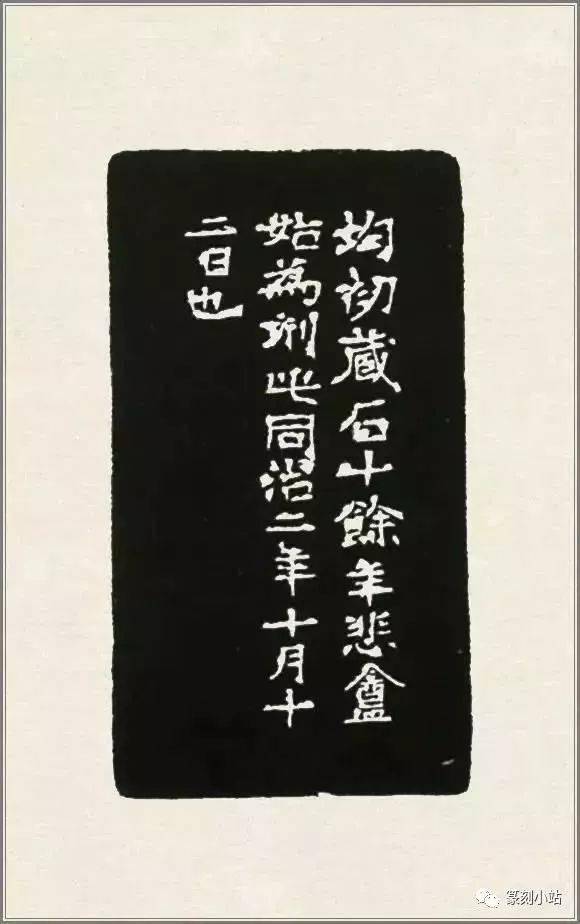 均初藏石十餘年悲盦
始為刪此同治二年十月十
二日也
篆刻小站